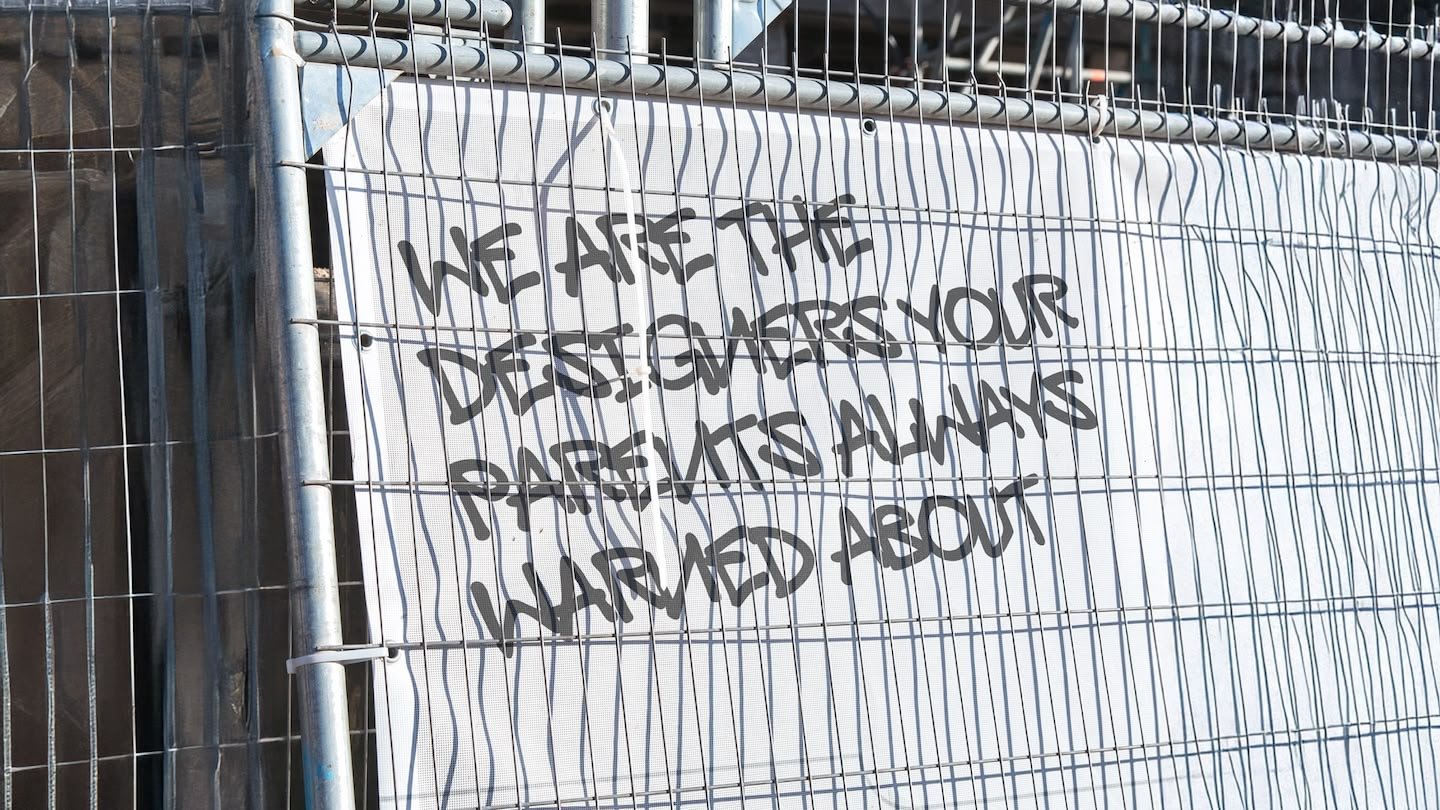 WE ARE THE
DESIGNERS YOUR
PARENTS ALWAYS
WARNED ABOUT